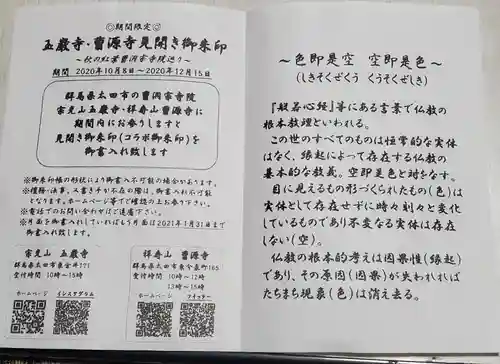 ◎期間限定◎
五巖寺・曹源寺見開き御朱印
～秋の紅葉曹洞宗寺院巡り～
期間 2020年10月8日～2020年12月15日
群馬県太田市の曹洞宗寺院
宝光山五巖寺・祥寿山曹源寺に
期間内にお参りしますと
見開き御朱印(コラボ御朱印)を
御書入れ致します
※御朱印帳の形状により御書入不可能の場合があります。
※檀務・法事、又書き手が不在の際は、御書入れ不可能
となります。ホームページ等でご確認の上お参り下さい。
※電話でのお問い合わせはご遠慮下さい。
※片面を御書入れしていればもう片面は2021年1月31日まで
御書入れ致します。
宝光山 五巖寺
群馬県太田市東金井771
受付時間 10時～15時
ホームページ インスタグラム
祥寿山 曹源寺
群馬県太田市東今泉町165
受付時間 10時～12時
13時～15時
ホームページ ツイッター
～色即是空 空即是色～
(しきそくぜくう くうそくぜしき)
『般若心経』等にある言葉で仏教の
根本教理といわれる。
この世のすべてのものは恒常的な実体
はなく、縁起によって存在する仏教の
基本的な教義。空即是色と対をなす。
目に見えるもの形づくられたもの(色)は
実体として存在せずに時々刻々と変化
しているものであり不変なる実体は存在
しない(空)。
仏教の根本的考えは因果性(縁起)
であり、その原因(因果)が失われれば
たちまち現象(色)は消え去る。